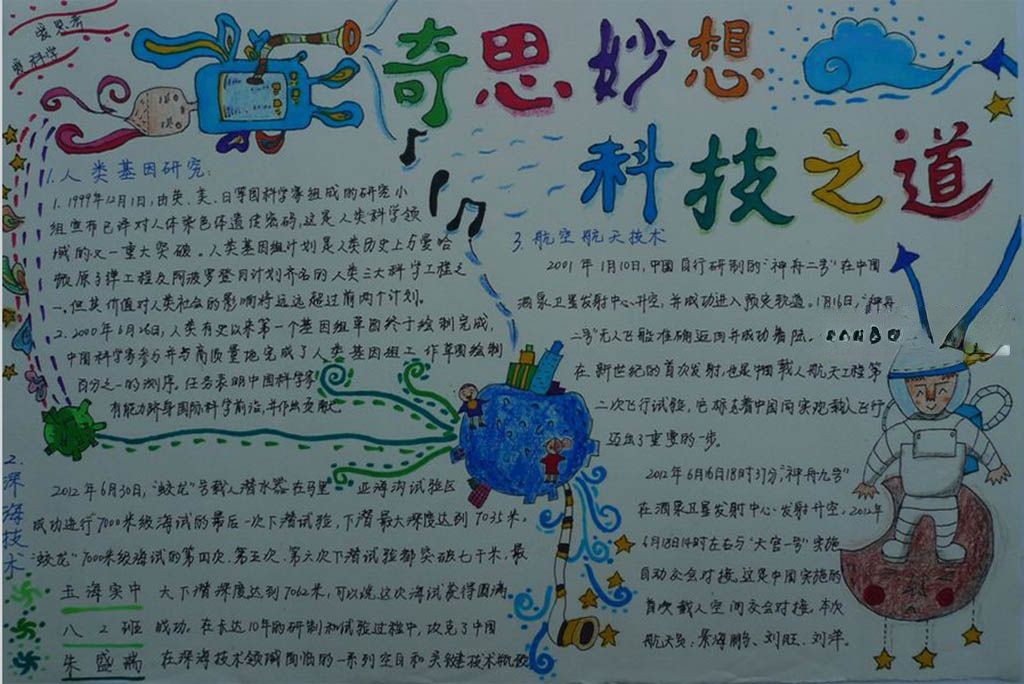 爱思考
爱科学
奇思妙想
科技之道
1.人类基因研究:
1. 1999年12月1日,由英、美、日等国科学家组成的研究小
组宣布已译对人体染色体遗传密码,这是人类科学领
域的又一重大突破。人类基因组计划是人类历史上与曼哈
顿原子弹工程及阿波罗登月计划齐名的人类三大科学工程之
一,但其价值对人类社会的影响将远远超过前两个计划。
2. 2000年6月26日,人类有史以来第一个基因组草图终于绘制完成,
中国科学家参与并高质量地完成了人类基因组工作草图绘制
百分之一的测序。任务表明中国科学家
有能力跻身国际科学前沿,并作出贡献
2.深海技术
2012年6月30日,“蛟龙”号载人潜水器在马里亚海沟试验区
成功进行7000米级海试的最后一次下潜试验,下潜最大深度达到7035米。
“蛟龙”7000米级海试的第四次、第五次、第六次下潜试验都突破七千米,最
大下潜深度达到7062米,可以说,这次海试获得圆满
成功。在长达10年的研制和试验过程中,攻克了中国
在深海技术领域面临的一系列空白和关键技术瓶颈
五海实中
八2班
朱盛瑞
3.航空航天技术
2001年1月10日,中国自行研制的“神舟二号”在中国
酒泉卫星发射中心升空,并成功进入预定轨道。1月16日,“神舟
二号”无人飞船准确返回并成功着陆。
在新世纪的首次发射,也是中国载人航天工程第
二次飞行试验,它标志着中国向实现载人飞行
迈出了重要的一步。
2012年6月16日18时37分“神舟九号”
在酒泉卫星发射中心发射升空,2012年
6月18日14时左右与“天宫一号”实施
自动交会对接,这是中国实施的
首次载人空间交会对接。本次
航天员:景海鹏、刘旺、刘洋。